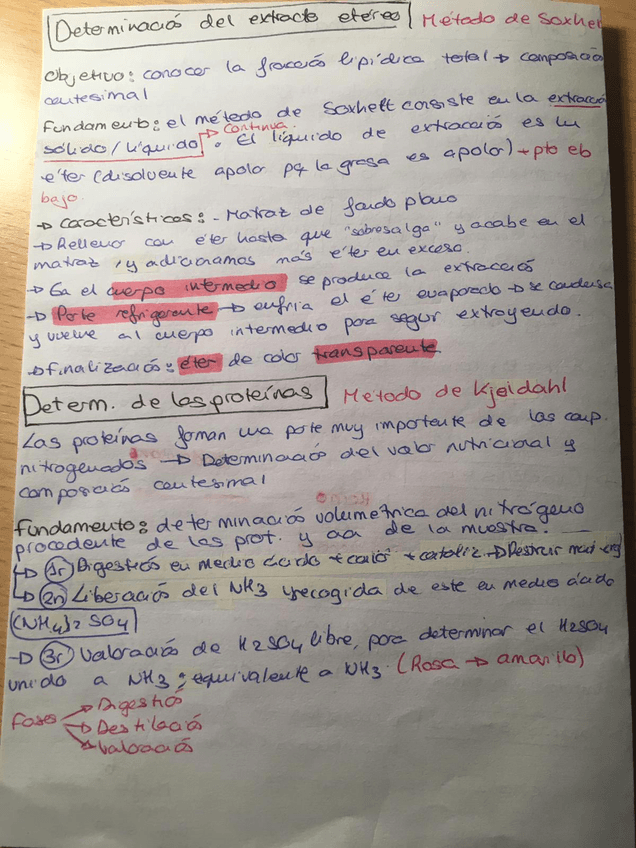 Determinació del extracto etéreo Método de Soxhlet
Objetivo: conocer la fracció lipídica total → composició
centesimal
Fundamento: el método de Soxhelt consiste en la extracció
sólido / líquido. → continua. El líquido de extracció es un
éter (disolvente apolar pq la grasa es apolar) + pto eb
bajo.
→ características: - Matraz de fondo plano
→ Rellenar con éter hasta que "sobresalga" y acabe en el
matraz, y adicionamos más éter en exceso.
→ En el cuerpo intermedio se produce la extracció
→ Parte refrigerante → enfria el éter evaporado → se condensa
y vuelve al cuerpo intermedio para seguir extrayendo.
→ finalizació: éter de color transparente
Determ. de las proteínas Método de Kjeldahl
Las proteínas forman una parte muy importante de los comp.
nitrogenados → Determinació del valor nutricional y
composició centesimal
Fundamento: determinació volumétrica del nitrógeno
procedente de las prot. y aa de la muestra.
→ 1r Digestió en medio ácido + caló + cataliz. → Destruir mat org
→ 2n Liberació del NH3 y recogida de este en medio ácido
(NH4)2 SO4
→ 3r Valoració de H2SO4 libre, para determinar el H2SO4
unido a NH3; equivalente a NH3. (Rosa → amarillo)
Fases → Digestió
→ Destilació
→ Valoració